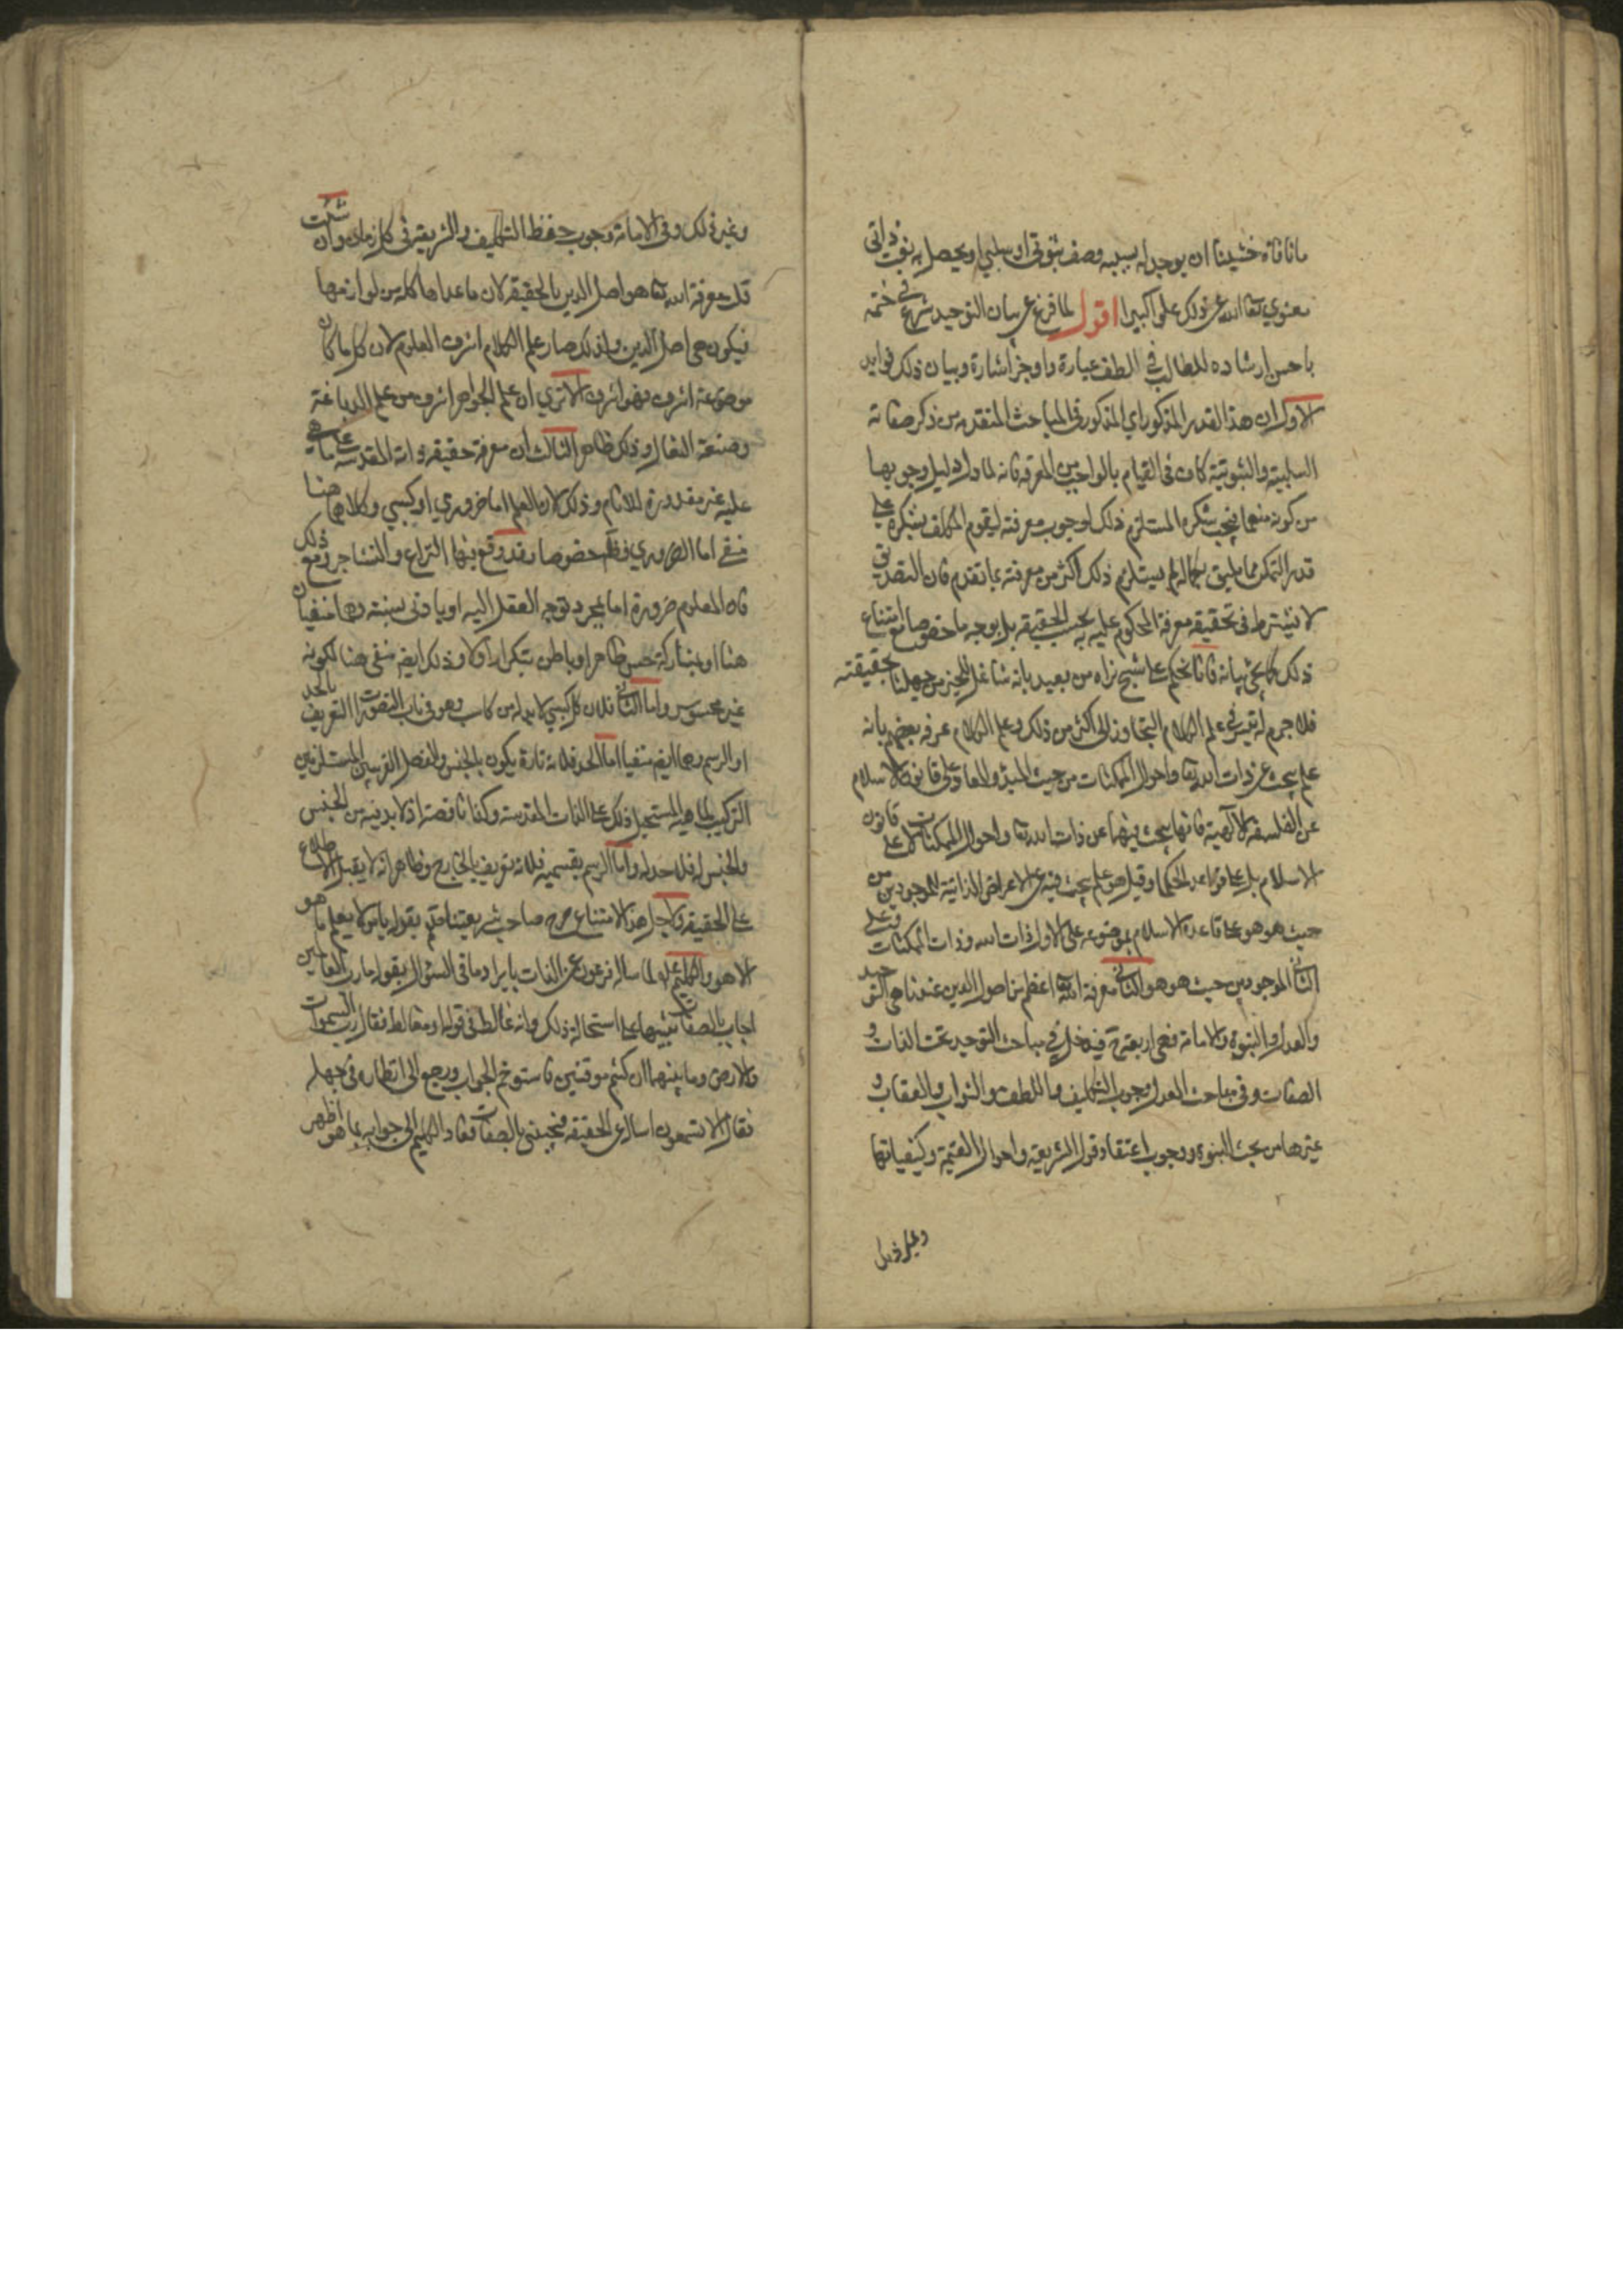 ما نافاه خشينا ان يوجد له بسببه وصف ثبوتي او سلبي او يحصل به نعت ذاتي
معنوي تعا الله عن ذلك علوا كبيرا اقول لما فرغ عن بيان التوحيد شرع في ختمه
باحسن ارشاده للطالب في الطف عبارة واوجز اشارة وبيان ذلك فوايد
الاول ان هذا القدر المذكور اي المذكور في المباحث المتقدمة من ذكر صفاته
السلبية والثبوتية كاف في القيام بالواجب من المعرفة فانه لما دل دليل وجوبها
من كونه منعما فيجب شكره المستلزم ذلك لوجوب معرفته ليقوم المكلف بشكره على
قدر التمكن مما يليق بكماله لم يستلزم ذلك اكثر من معرفته بما تقدم فان التصديق
لا يشترط في تحقيقه معرفة المحكوم عليه به بحسب الحقيقة بل بوجه ما خصوصا مع امتناع
ذلك كما يجئ بيانه فانا نحكم على شبح نراه من بعيد بانه شاغل للحيز مع جهلنا بحقيقته
فلا جرم لم يتيسر في علم الكلام التجاوز الى اكثر من ذلك وعلم الكلام عرفه بعضهم بانه
علم يبحث عن ذات الله تعا واحوال الممكنات من حيث المبدء والمعاد على قانون الاسلام
عن الفلسفة الالهية فانها يبحث فيها عن ذات الله تعا واحوال الممكنات لا على قانون
الاسلام بل على قواعد الحكما وقيل هو علم يبحث فيه عن الاعراض الذاتية للموجود من
حيث هو هو على قاعدة الاسلام فموضوعه على الاول ذات الله وذات الممكنات وعلى
الثاني الموجود من حيث هو هو الثاني معرفة الله تعا اعظم من اصول الدين عندنا هي التوحيد
والعدل والنبوة والامامة فهي اربعة فيدخل في مباحث التوحيد بحث الذات و
الصفات وفي مباحث العدل وجوب التكليف واللطف والثواب والعقاب و
غيرها من بحث النبوة ووجوب اعتقاد قول الشريعة واحوال القيمة وكيفياتها
وغير ذلك
وغير ذلك وفي الامامة وجوب حفظ التكليف والشريعة في كل زمان وان شئت
قلت معرفة الله تعا هو اصل الدين بالحقيقة لان ما عداها كله من لوازمها
فيكون هي اصل الدين ولذلك صار علم الكلام اشرف العلوم لان كل ما كان
موضوعه اشرف فهو اشرف الا ترى ان علم الجواهر اشرف من علم الدباغة
وصنعة النعال وذلك ظاهر الثالث ان معرفة حقيقة ذاته المقدسة على ما هي
عليه غير مقدورة للانام وذلك لان العلم اما ضروري او كسبي وكلاهما هنا
منفي اما الضروري فظ خصوصا وقد وقع فيها النزاع والتشاجر ومع ذلك
فان المعلوم ضرورة اما بمجرد توجه العقل اليه او بادنى سبب وهما منفيان
هنا او بمشاركة حس ظاهر او باطن بتكرار او لا وذلك ايضا منفي هنا لكونه
غير محسوس واما الثاني فلان كل كسبي لا بد له من كاسب وهو في باب التصورات التعريف بالحد
او الرسم وهما ايضا منفيان اما الحد فلانه تارة يكون بالجنس والفصل القريبين المستلزمين
التركيب للماهية المستحيل ذلك على الذات المقدسة وكذا ناقصة اذ لا بد فيه من الجنس
ولا جنس له فلا حد له واما الرسم بقسميه فلانه تعريف بالخارج وظاهر انه لا يقبل الاطلاع
على الحقيقة ولاجل هذا الامتناع صرح صاحب شريعتنا بقوله يا من لا يعلم ما هو
الا هو والكليم لما ساله فرعون عن الذات بايراد ما في السؤال بقوله ما رب العالمين
اجاب بالصفات تنبيها على استحالة ذلك وانه غالط في قوله او مغالط فقال رب السموات
والارض وما بينهما ان كنتم موقنين فاستوخم الجواب ورجع الى انظاره في جهله
فقال الا تسمعون اساله عن الحقيقة فيجيبني بالصفات فعاد الكليم الى جوابه بما هو اظهر